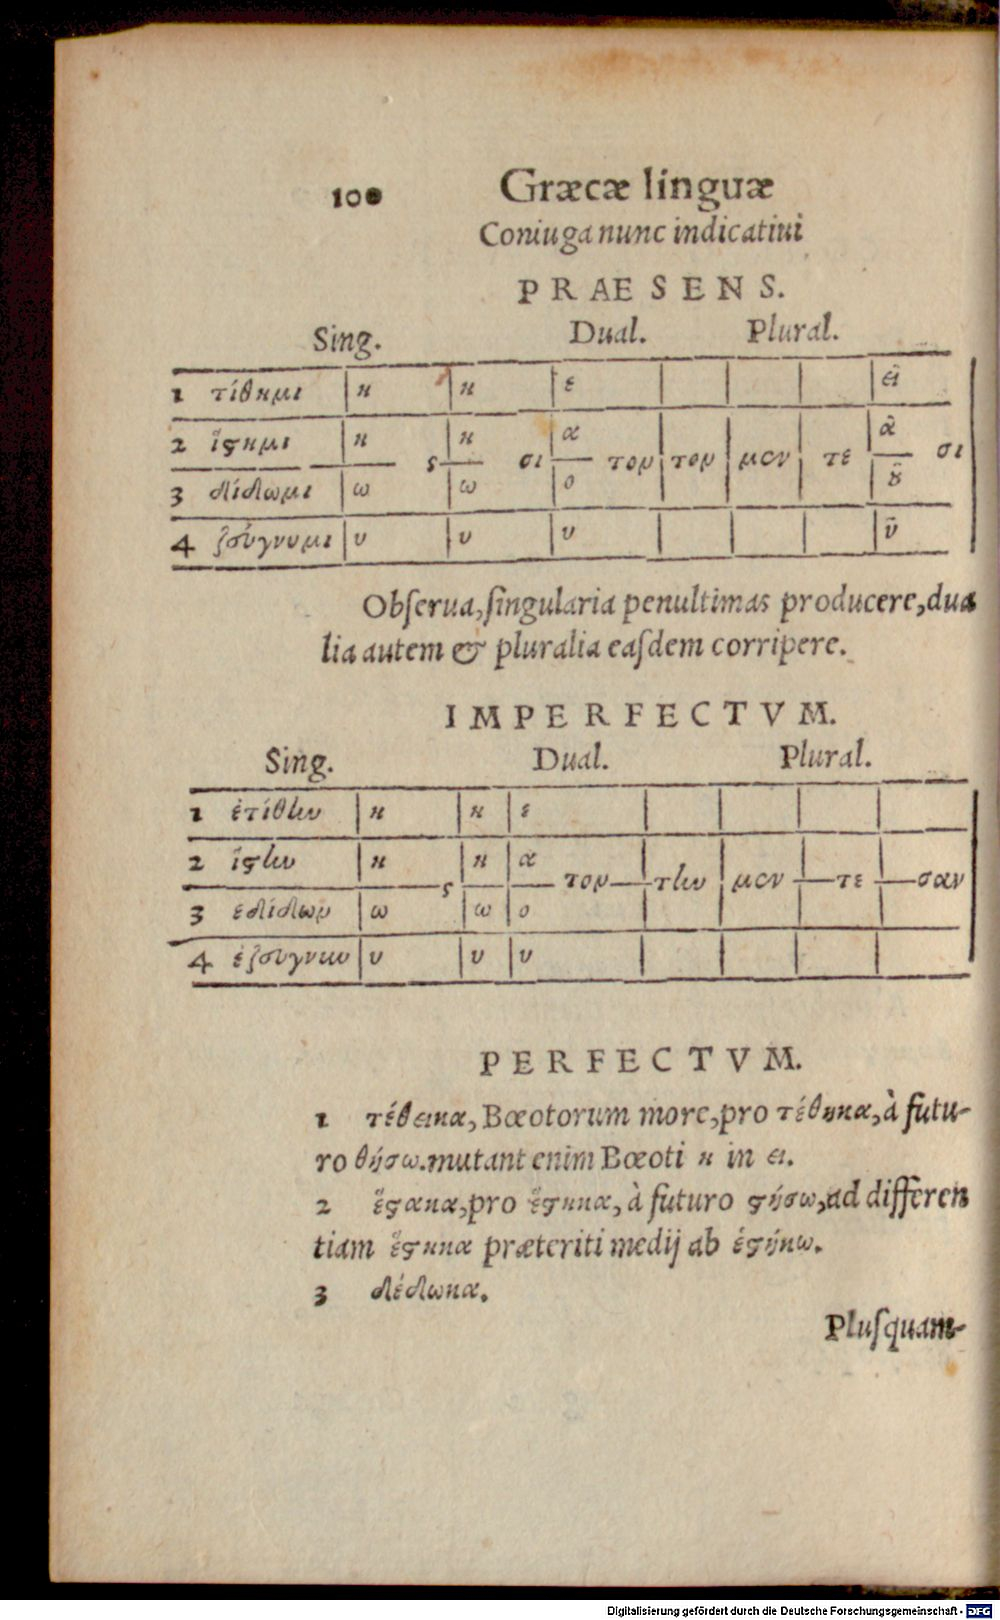 100 Græcæ linguæ
Coniuga nunc indicatiui
PRAESENS.
Sing. Dual. Plural.
1 τίθημι η η ε εῖ
2 ἵςημι η η α ᾶ
ς σι τον τον μεν τε σι
3 δίδωμι ω ω ο οῦ
4 ζεύγνυμι υ υ υ ῦ
Obſerua, ſingularia penultimas producere, dua
lia autem & pluralia eaſdem corripere.
IMPERFECTVM.
Sing. Dual. Plural.
1 ἐτίθην η η ε
2 ἵςην η η α
ς τον την μεν τε σαν
3 ἐδίδων ω ω ο
4 ἐζεύγνυν υ υ υ
PERFECTVM.
1 τέθεικα, Bœotorum more, pro τέθηκα, à futu-
ro θήσω. mutant enim Bœoti η in ει.
2 ἕςακα, pro ἕςηκα, à futuro ςήσω, ad differen
tiam ἕςηκα præteriti medij ab ἑςήκω.
3 δέδωκα.
Pluſquam-
Digitalisierung gefördert durch die Deutsche Forschungsgemeinschaft - DFG